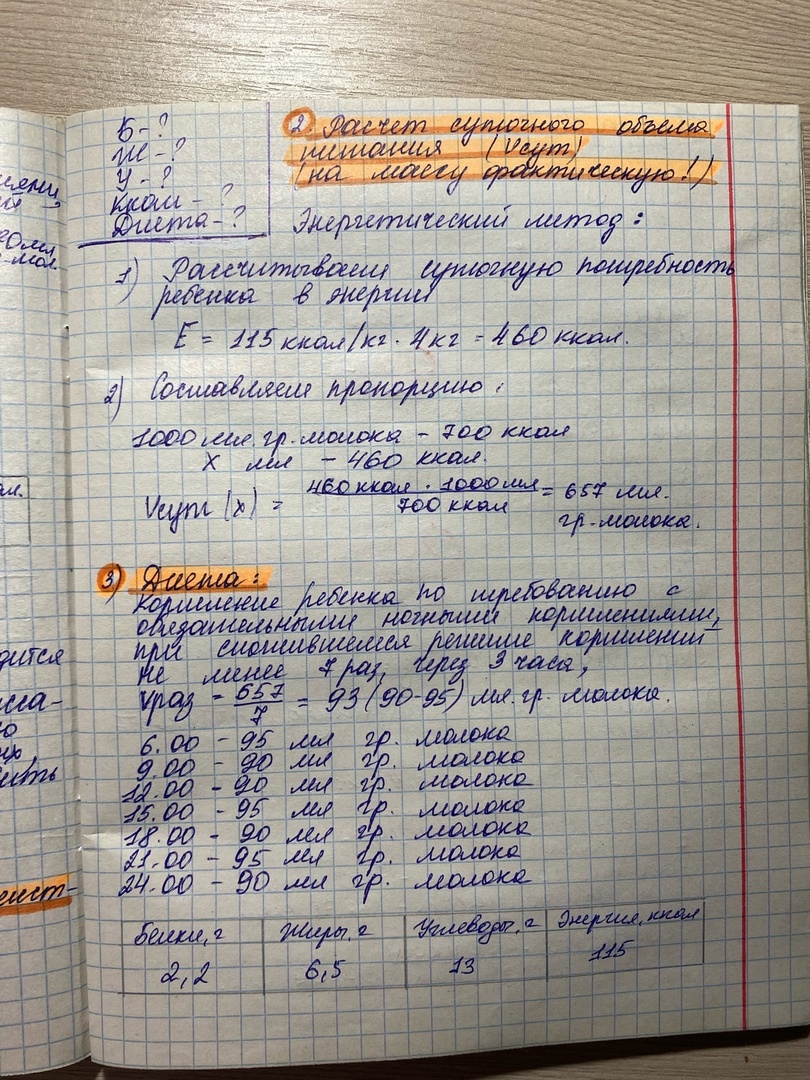 Б - ?
Ж - ?
У - ?
Ккал - ?
Диета - ?
2. Расчет суточного объема
питания (Vсут)
(на массу фактическую!)
Энергетический метод:
1) Рассчитываем суточную потребность
ребенка в энергии
E = 115 ккал/кг · 4кг = 460 ккал.
2) Составляем пропорцию:
1000 мл. гр. молока - 700 ккал
X мл - 460 ккал.
Vсут (x) = 460 ккал · 1000 мл / 700 ккал = 657 мл.
гр. молока.
3) Диета:
Кормление ребенка по требованию с
обязательными ночными кормлениями,
при сложившемся режиме кормлений
не менее 7 раз, через 3 часа,
Vраз = 657/7 = 93 (90-95) мл. гр. молока.
6.00 - 95 мл гр. молока
9.00 - 90 мл гр. молока
12.00 - 90 мл гр. молока
15.00 - 95 мл гр. молока
18.00 - 90 мл гр. молока
21.00 - 95 мл гр. молока
24.00 - 90 мл гр. молока
Белки, г Жиры, г Углеводы, г Энергия, ккал
2,2 6,5 13 115